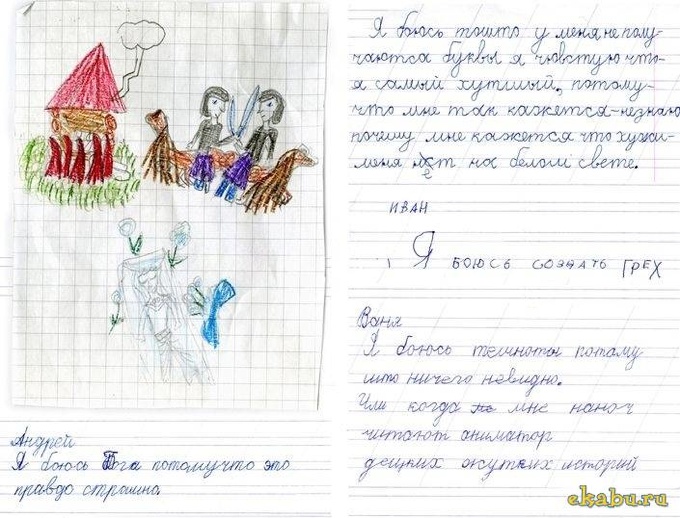 Андрей
Я боюсь Бга потомучто это
правдо страшно.
Я боюсь пошто у меня не полу-
чаютса буквы я чювстую что-
я самый хутшый, потому-
что мне так кажется-незнаю
почему мне кажется что хужи-
меня нет на белом свете.
ИВАН
Я БОЮСЬ СОЗДАТЬ ГРЕХ
Ваня
Я боюсь темноты потаму
што ничего невидно.
Или когда мне наноч
читают аниматор
децких жутких историй
ekabu.ru